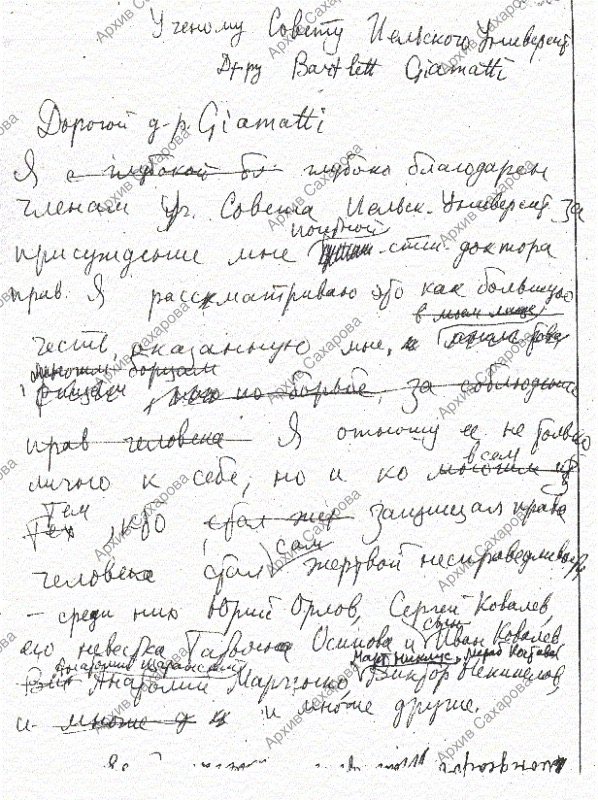 Ученому Совету Иельского Университ.
Д-ру Bartlett Giamatti
Дорогой д-р. Giamatti
Я с глубокой бл глубоко благодарен
членам Уч. Совета Иельск. Университ. за
почетной
присуждение мне степ. доктора
прав. Я рассматриваю это как большую
в моем лице,
честь, оказанную мне, и
многим борцам
по борьбе, за соблюдение
прав человека Я отношу ее не только
всем
лично к себе, но и ко многим из
тем
Тех, кто стал жер защищая права
сам
человека стал жертвой несправедливости
– среди них Юрий Орлов, Сергей Ковалев,
сын
его невестка Татьяна Осипова и Иван Ковалев
Март Никлус,
Анатолий Щаранский
Анатолий Марченко, Виктор Некипелов,
и многие д и и многие другие.
Архив Сахарова